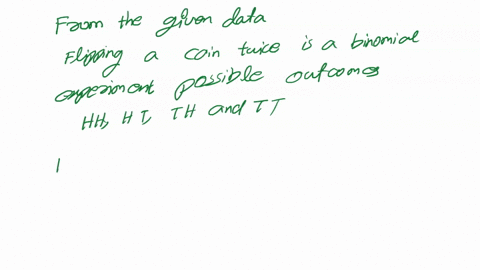 From the given data
Flipping a coin twice is a binomial
experiment possible outcomes
HH, HT, TH and TT